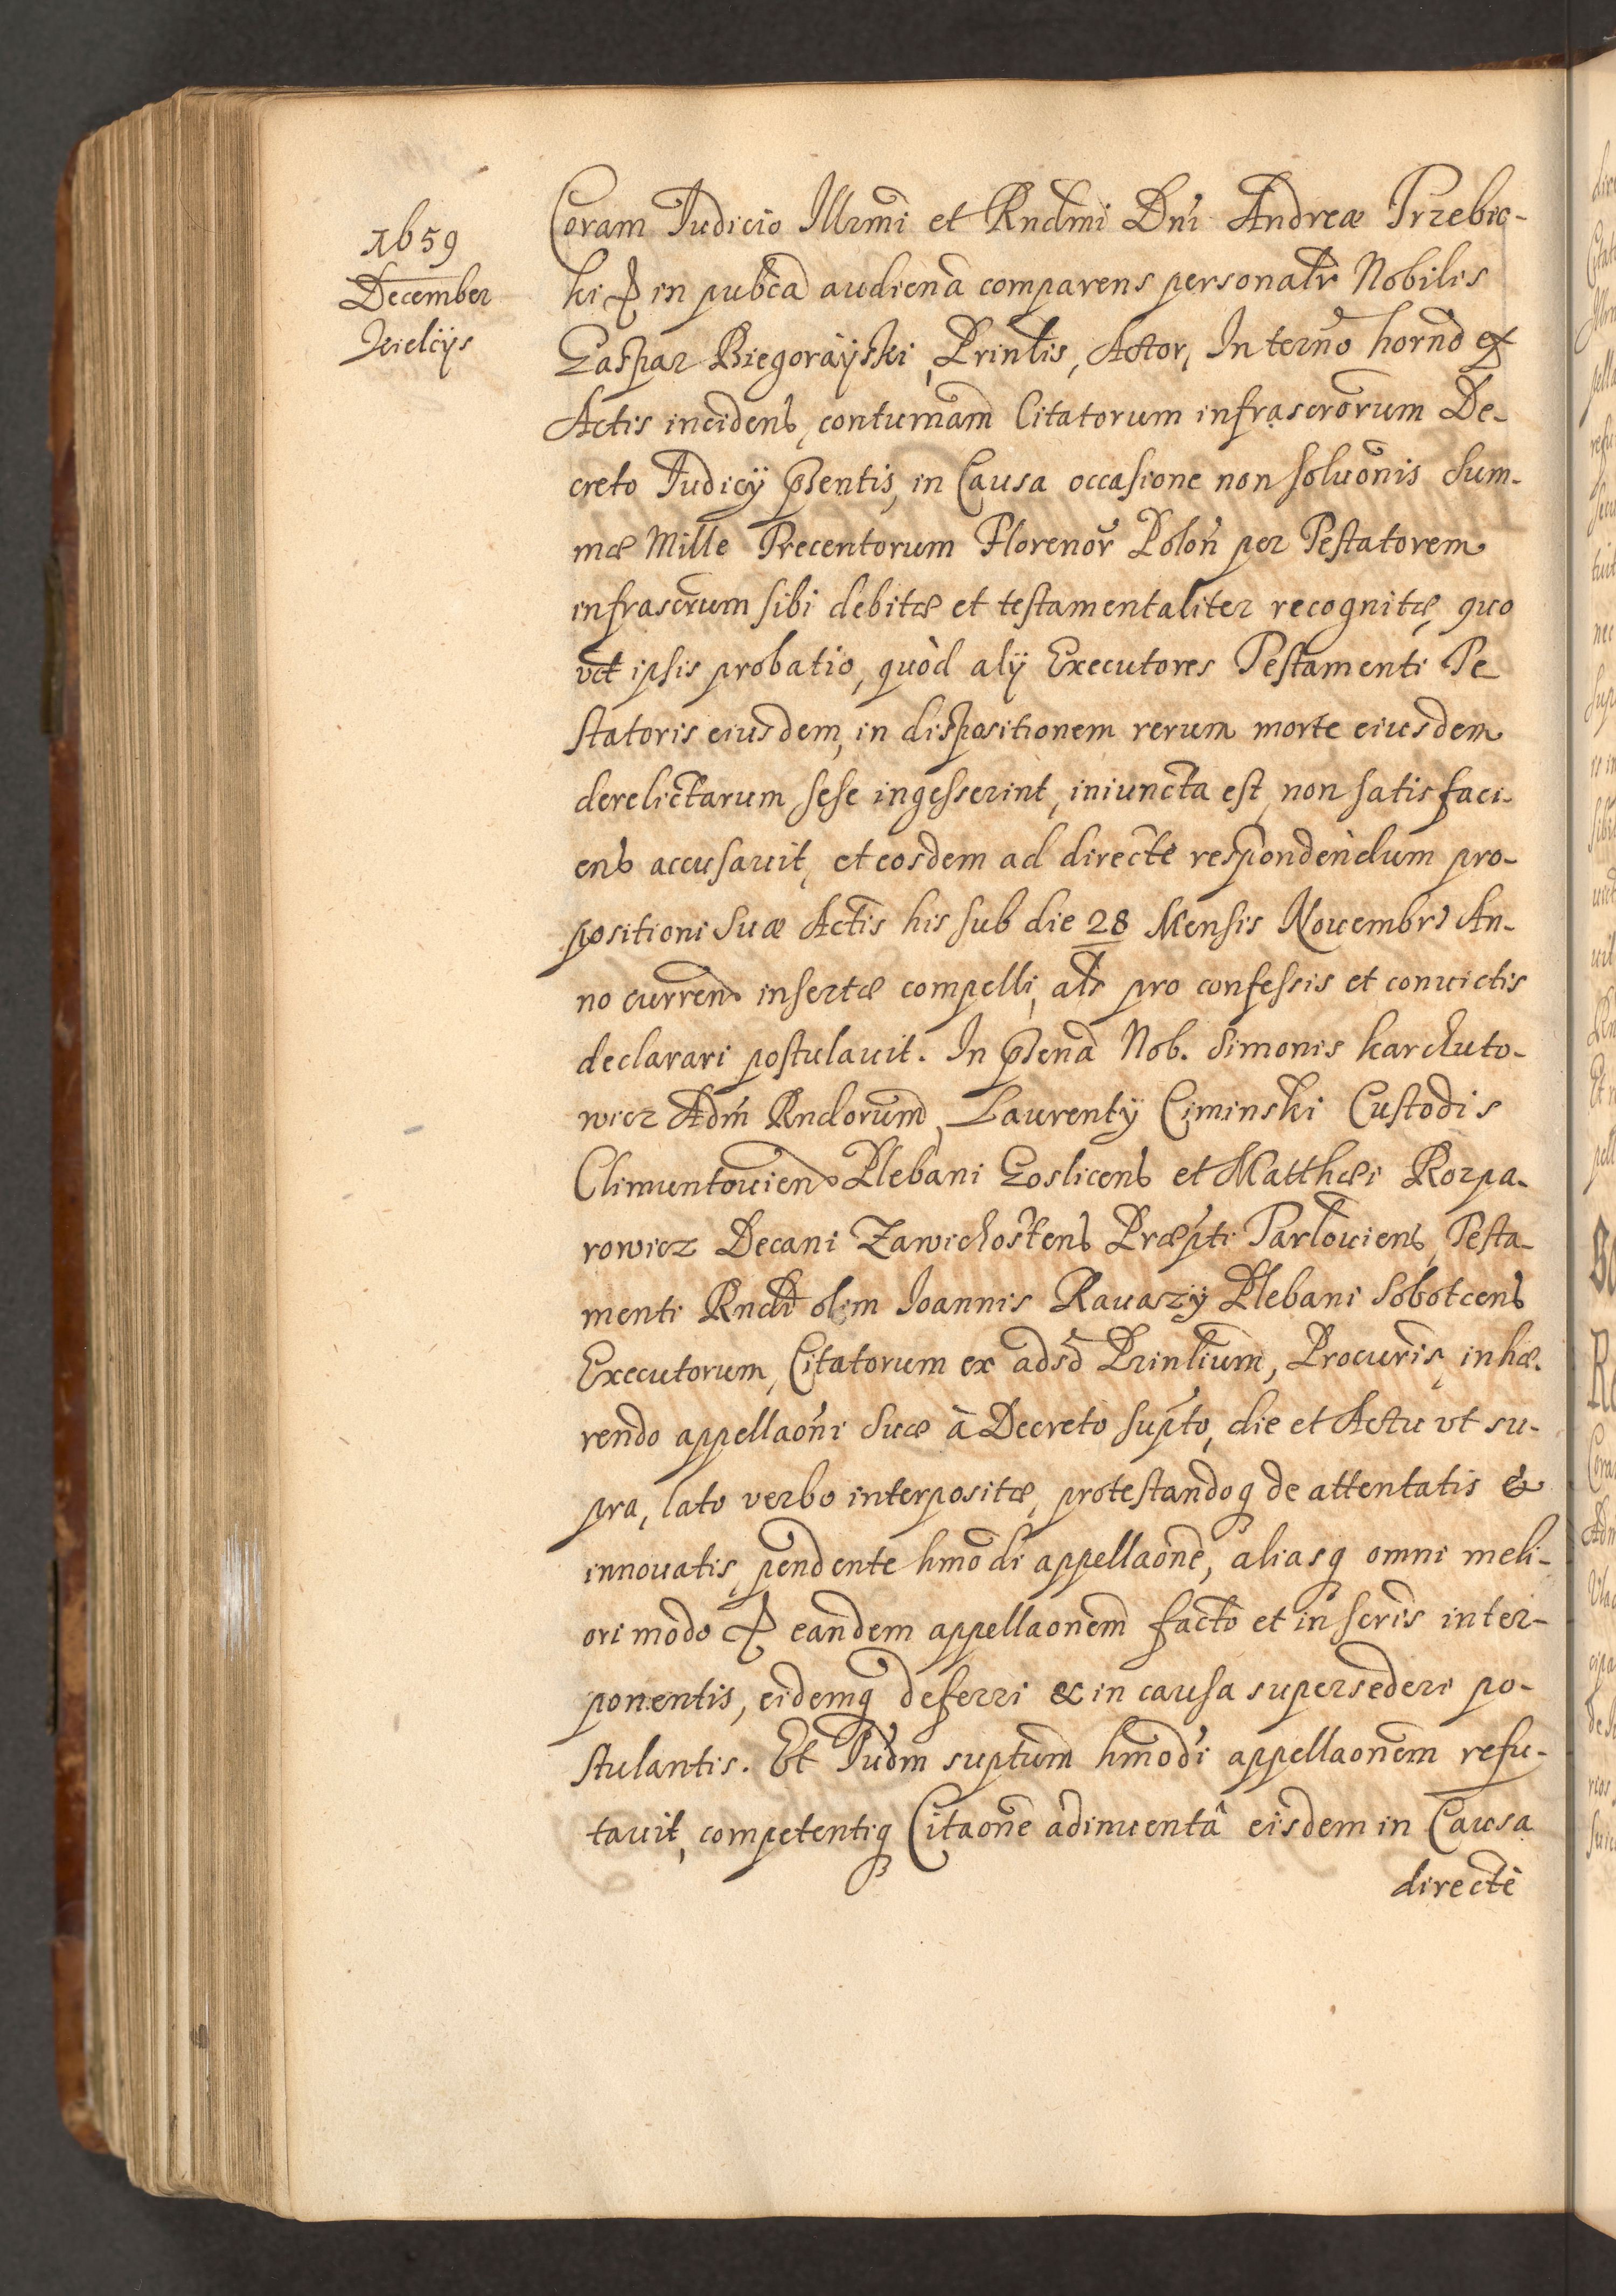 1659
December
Kielcÿs
Coram Iudicio Illrmi et Rndmi Dni Andreæ Trzebic-
ki & in pubca audiena comparens personalr Nobilis
Gaspar Biegorayski, Prinlis, Actor, In termo hornō ex
Actis incidens, contumam Citatorum infrascrorum De-
creto Iudicÿ psentis, in Causa occasione non soluonis Sum-
mæ Mille Trecentorum Florenor Polon per Testatorem
infrascrum sibi debitæ et testamentaliter recognitæ, quo
vct ipsis probatio, quòd alÿ Executores Testamenti Te
statoris eiusdem, in dispositionem rerum morte eiusdem
derelictarum sese ingesserint, iniuncta est, non satisfaci-
ens accusauit, et eosdem ad directè respondendum pro-
positioni Suæ Actis his sub die 28 Mensis Nouembrs An-
no curren insertæ compelli, als pro confessis et conuictis
declarari postulauit. In psena Nob. Simonis Karchuto-
wicz Adm Rndorum, Laurentÿ Ciminski Custodis
Climuntouien Plebani Goslicens et Matthæi Rozpa-
rowicz Decani Zawichostens Præpti Parlouiens, Testa-
menti Rndi olim Ioannis Rauaszÿ Plebani Sobotcens
Executorum, Citatorum ex adsō Prinlium, Procuris, inhæ-
rendo appellaoni Suæ à Decreto supto, die et Actu vt su-
pra, lato verbo interpositæ, protestandoq de attentatis &
innouatis, pendente hmodi appellaone, aliasq omni meli-
ori modo & eandem appellaonem facto et in scris inter-
ponentis, eidemq deferri & in causa supersederi po-
stulantis. Et Iudm suptum hmodi appellaonem refu-
tauit, competentiq Citaone adinuentâ eisdem in Causa
directè